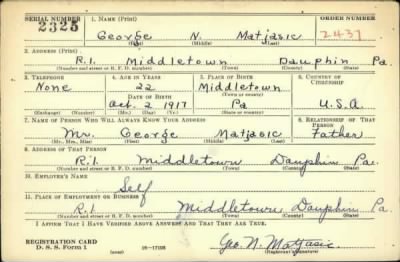 SERIAL NUMBER 1. NAME (Print) ORDER NUMBER
2325 George N. Matjasic 2437
(First) (Middle) (Last)
2. ADDRESS (Print)
R.1. Middletown Dauphin Pa.
(Number and street or R. F. D. number) (Town) (County) (State)
3. TELEPHONE 4. AGE IN YEARS 5. PLACE OF BIRTH 6. COUNTRY OF CITIZENSHIP
None 22 Middletown
DATE OF BIRTH (Town or county)
Oct. 2 1917 Pa U.S.A.
(Exchange) (Number) (Mo.) (Day) (Yr.) (State or country)
7. NAME OF PERSON WHO WILL ALWAYS KNOW YOUR ADDRESS 8. RELATIONSHIP OF THAT PERSON
Mr. George Matjasic Father
(Mr., Mrs., Miss) (First) (Middle) (Last)
9. ADDRESS OF THAT PERSON
R.1. Middletown Dauphin Pa.
(Number and street or R. F. D. number) (Town) (County) (State)
10. EMPLOYER'S NAME
Self
11. PLACE OF EMPLOYMENT OR BUSINESS
R.1. Middletown Dauphin Pa.
(Number and street or R. F. D. number) (Town) (County) (State)
I AFFIRM THAT I HAVE VERIFIED ABOVE ANSWERS AND THAT THEY ARE TRUE.
REGISTRATION CARD
D. S. S. Form 1 (over) Geo. N. Matjasic
(Registrant's signature)